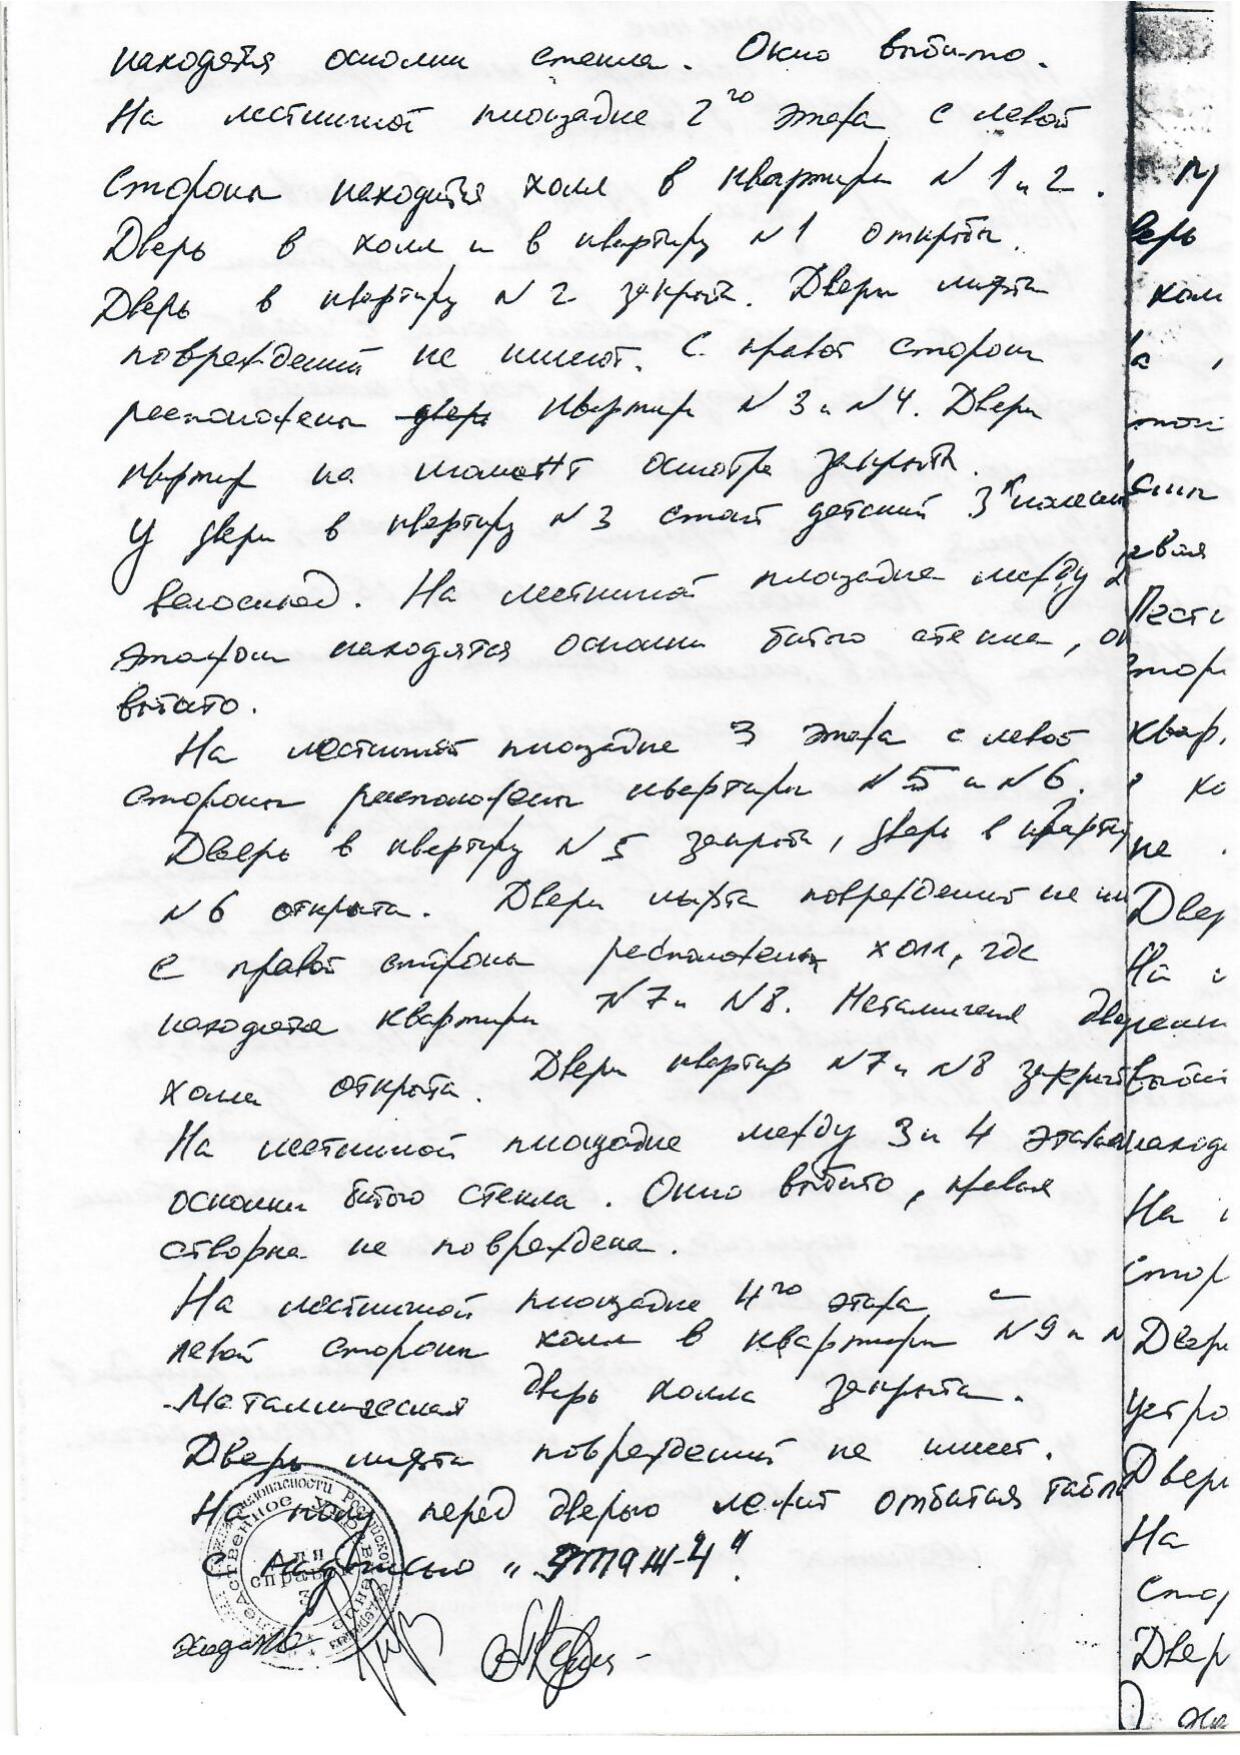 находятся осколки стекла. Окно выбито.
На лестничной площадке 2го этажа с левой
стороны находится холл в квартиры N 1 и 2.
Дверь в холл и в квартиру N1 открыты.
Дверь в квартиру N 2 закрыта. Двери лифта
повреждений не имеют. С правой стороны
расположены двери квартиры N 3 и N4. Двери
квартир на момент осмотра закрыты.
У двери в квартиру N 3 стоит детский 3х
велосипед. На лестничной площадке между 2
этажом находятся осколки битого стекла,
выбито.
На лестничной площадке 3 этажа с левой
стороны расположены квартиры N 5 и N6.
Дверь в квартиру N 5 закрыта, дверь в кварти
N 6 открыта. Двери лифта повреждений не
с правой стороны расположен холл, где
находятся квартиры N7 и N8.
холла открыта. Двери квартир N7 и N8
На лестничной площадке между 3 и 4
осколки битого стекла. Окно выбито, правая
створка не повреждена.
На лестничной площадке 4го этажа с
левой стороны холл в квартиры N 9 и N
Металлическая дверь холла закрыта.
Дверь лифта повреждений не имеет.
На полу перед дверью лежит отбитая табл
с надписью „ЭТАЖ-4".
безопасности Российской
Следственное управление
Для
справок
3
ерь
хол
Лест
квар.
не
Двер
На
На
Двери
устро
Двери
На
Двер